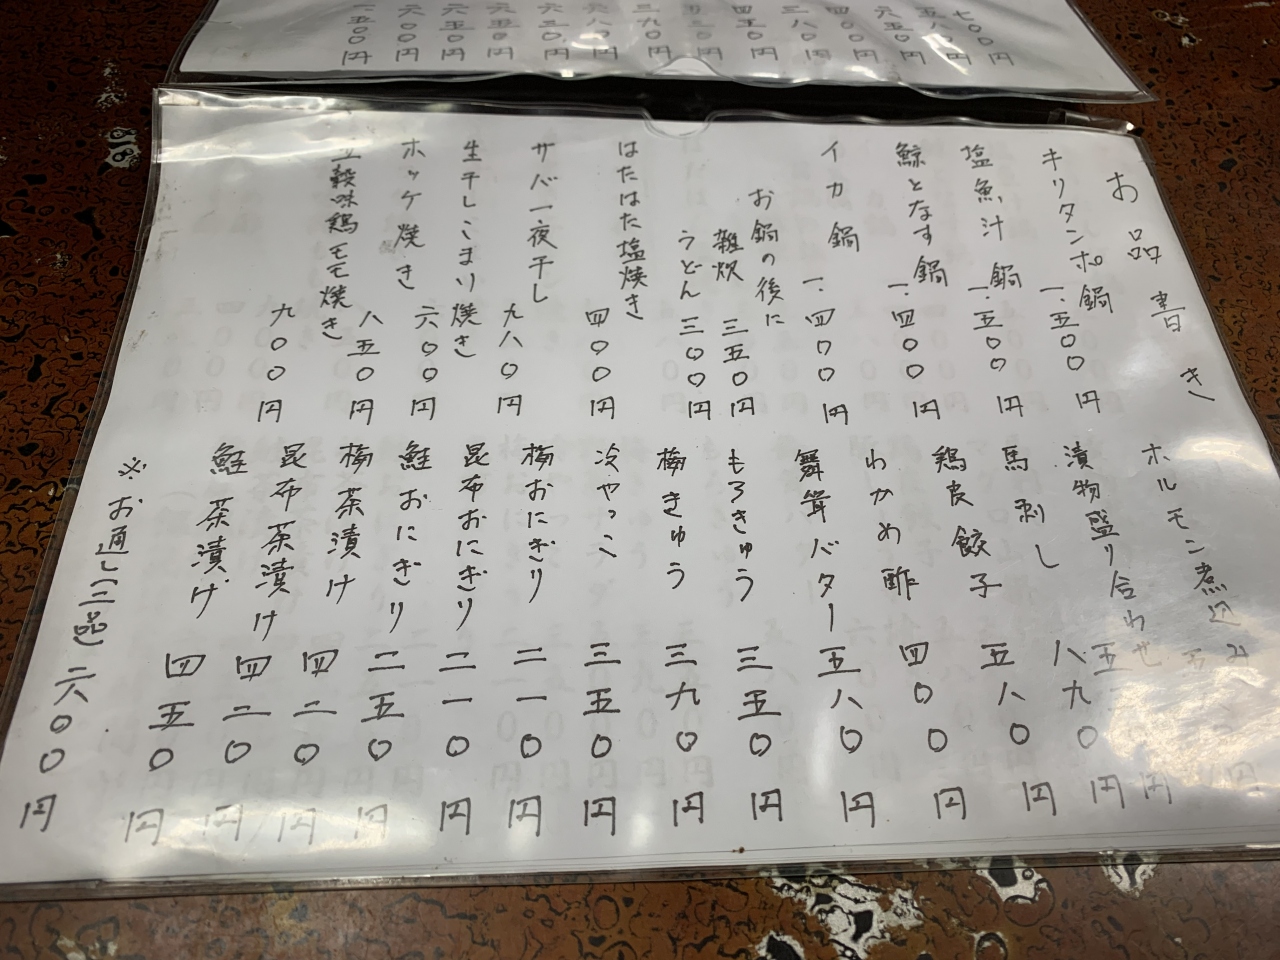 七〇〇円
五八〇円
六五〇円
四〇〇円
三八〇円
四五〇円
三九〇円
六八〇円
六三〇円
六五〇円
六五〇円
六〇〇円
一.五〇〇円
お品書き
キリタンポ鍋 一.五〇〇円
塩魚汁鍋 一.五〇〇円
鯨となす鍋 一.四〇〇円
イカ鍋 一.四〇〇円
お鍋の後に
雑炊 三五〇円
うどん 三〇〇円
はたはた塩焼き 四〇〇円
サバ一夜干し 九八〇円
生干しこまい焼き 六〇〇円
ホッケ焼き 八五〇円
五穀味鶏モモ焼き 九〇〇円
ホルモン煮込み 円
漬物盛り合わせ 円
馬刺し 八九〇円
鶏良餃子 五八〇円
わかめ酢 四〇〇円
舞茸バター 五八〇円
もろきゅう 三五〇円
梅きゅう 三九〇円
冷やっこ 三五〇円
梅おにぎり 二一〇円
昆布おにぎり 二一〇円
鮭おにぎり 二五〇円
梅茶漬け 四二〇円
昆布茶漬け 四二〇円
鮭茶漬け 四五〇円
※お通し(三品) 六〇〇円